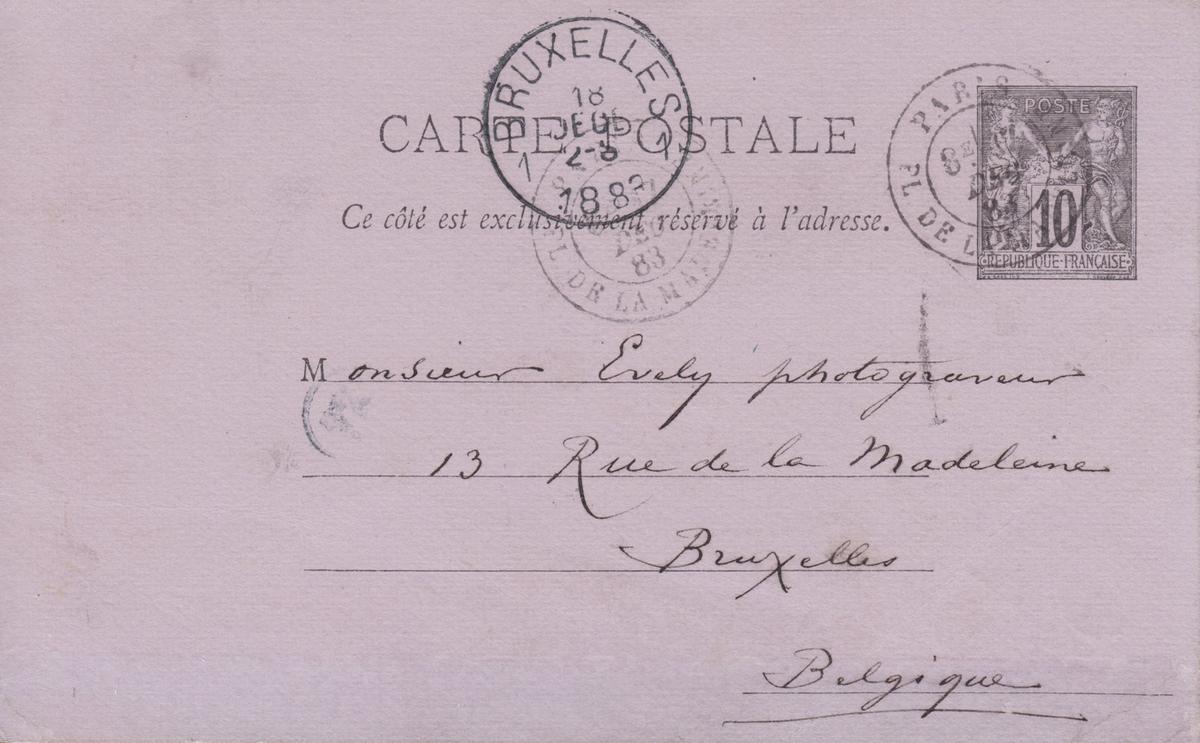 BRUXELLES
18
1 1
2-8
1883
PARIS
PL. DE LA
DEC
83
POSTE
10
REPUBLIQUE·FRANÇAISE
CARTE POSTALE
Ce côté est exclusivement réservé à l'adresse.
DEC
83
PL. DE LA MADELEINE
Monsieur Evely photograveur
13 Rue de la Madeleine
Bruxelles
Belgique